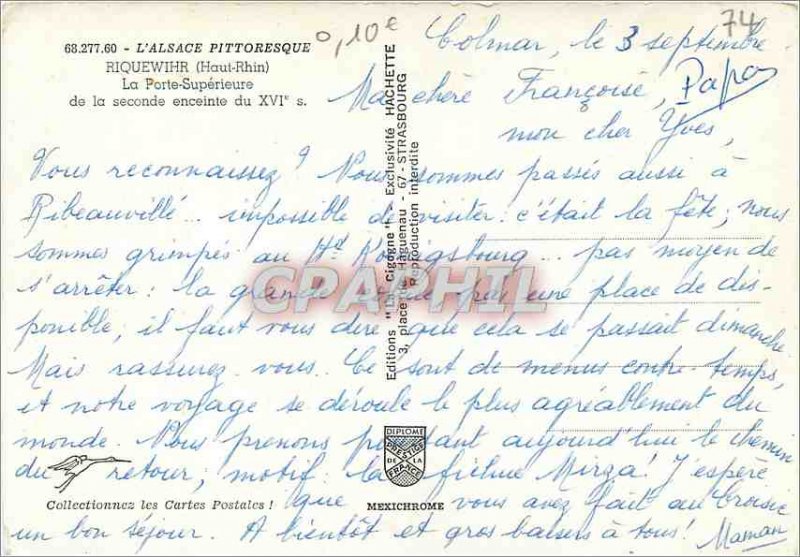 68.277.60 - L'ALSACE PITTORESQUE
RIQUEWIHR (Haut-Rhin)
La Porte-Supérieure
de la seconde enceinte du XVIe s.
0,10€
74
Colmar, le 3 septembre
Ma chère Françoise, Papa
mon cher Yves,
Vous reconnaissez? Nous sommes passés aussi à
Ribeauvillé... impossible de visiter: c'était la fête; nous
sommes grimpés au Ht Koenigsbourg... pas moyen de
s'arrêter: la grande pas une place de dis-
ponible; il faut vous dire que cela se passait dimanche.
Mais rassurez-vous. Ce sont de menus contre-temps,
et notre voyage se déroule le plus agréablement du
monde. Nous prenons pourtant aujourd'hui le chemin
du retour; motif la fichue Mirza! J'espère
que vous avez fait au Croisic
un bon séjour. A bientôt et gros baisers à tous! Maman
Editions "La Cigogne" - Exclusivité HACHETTE
3, place de Haguenau - 67 - STRASBOURG
Reproduction interdite
CPAPHIL
DIPLOME
PRESTIGE
DE LA
FRANCE
Collectionnez les Cartes Postales !
MEXICHROME